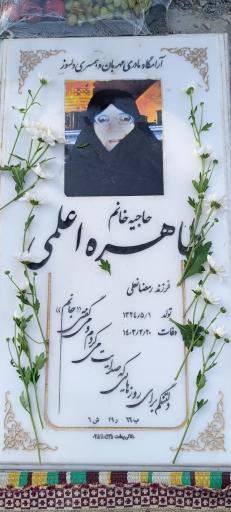 آرامگاه مادری مهربان و همسری دلسوز
حاجیه خانم
طاهره اعلمی
فرزند رمضانعلی
تولد ۱۳۲۴/۵/۱
وفات ۱۴۰۳/۳/۲۰
دلتنگم برای روزهایی که صدایت می کردم و می گفتی «جانم»
ب ۶۶ ر ۲۹ ش ۶